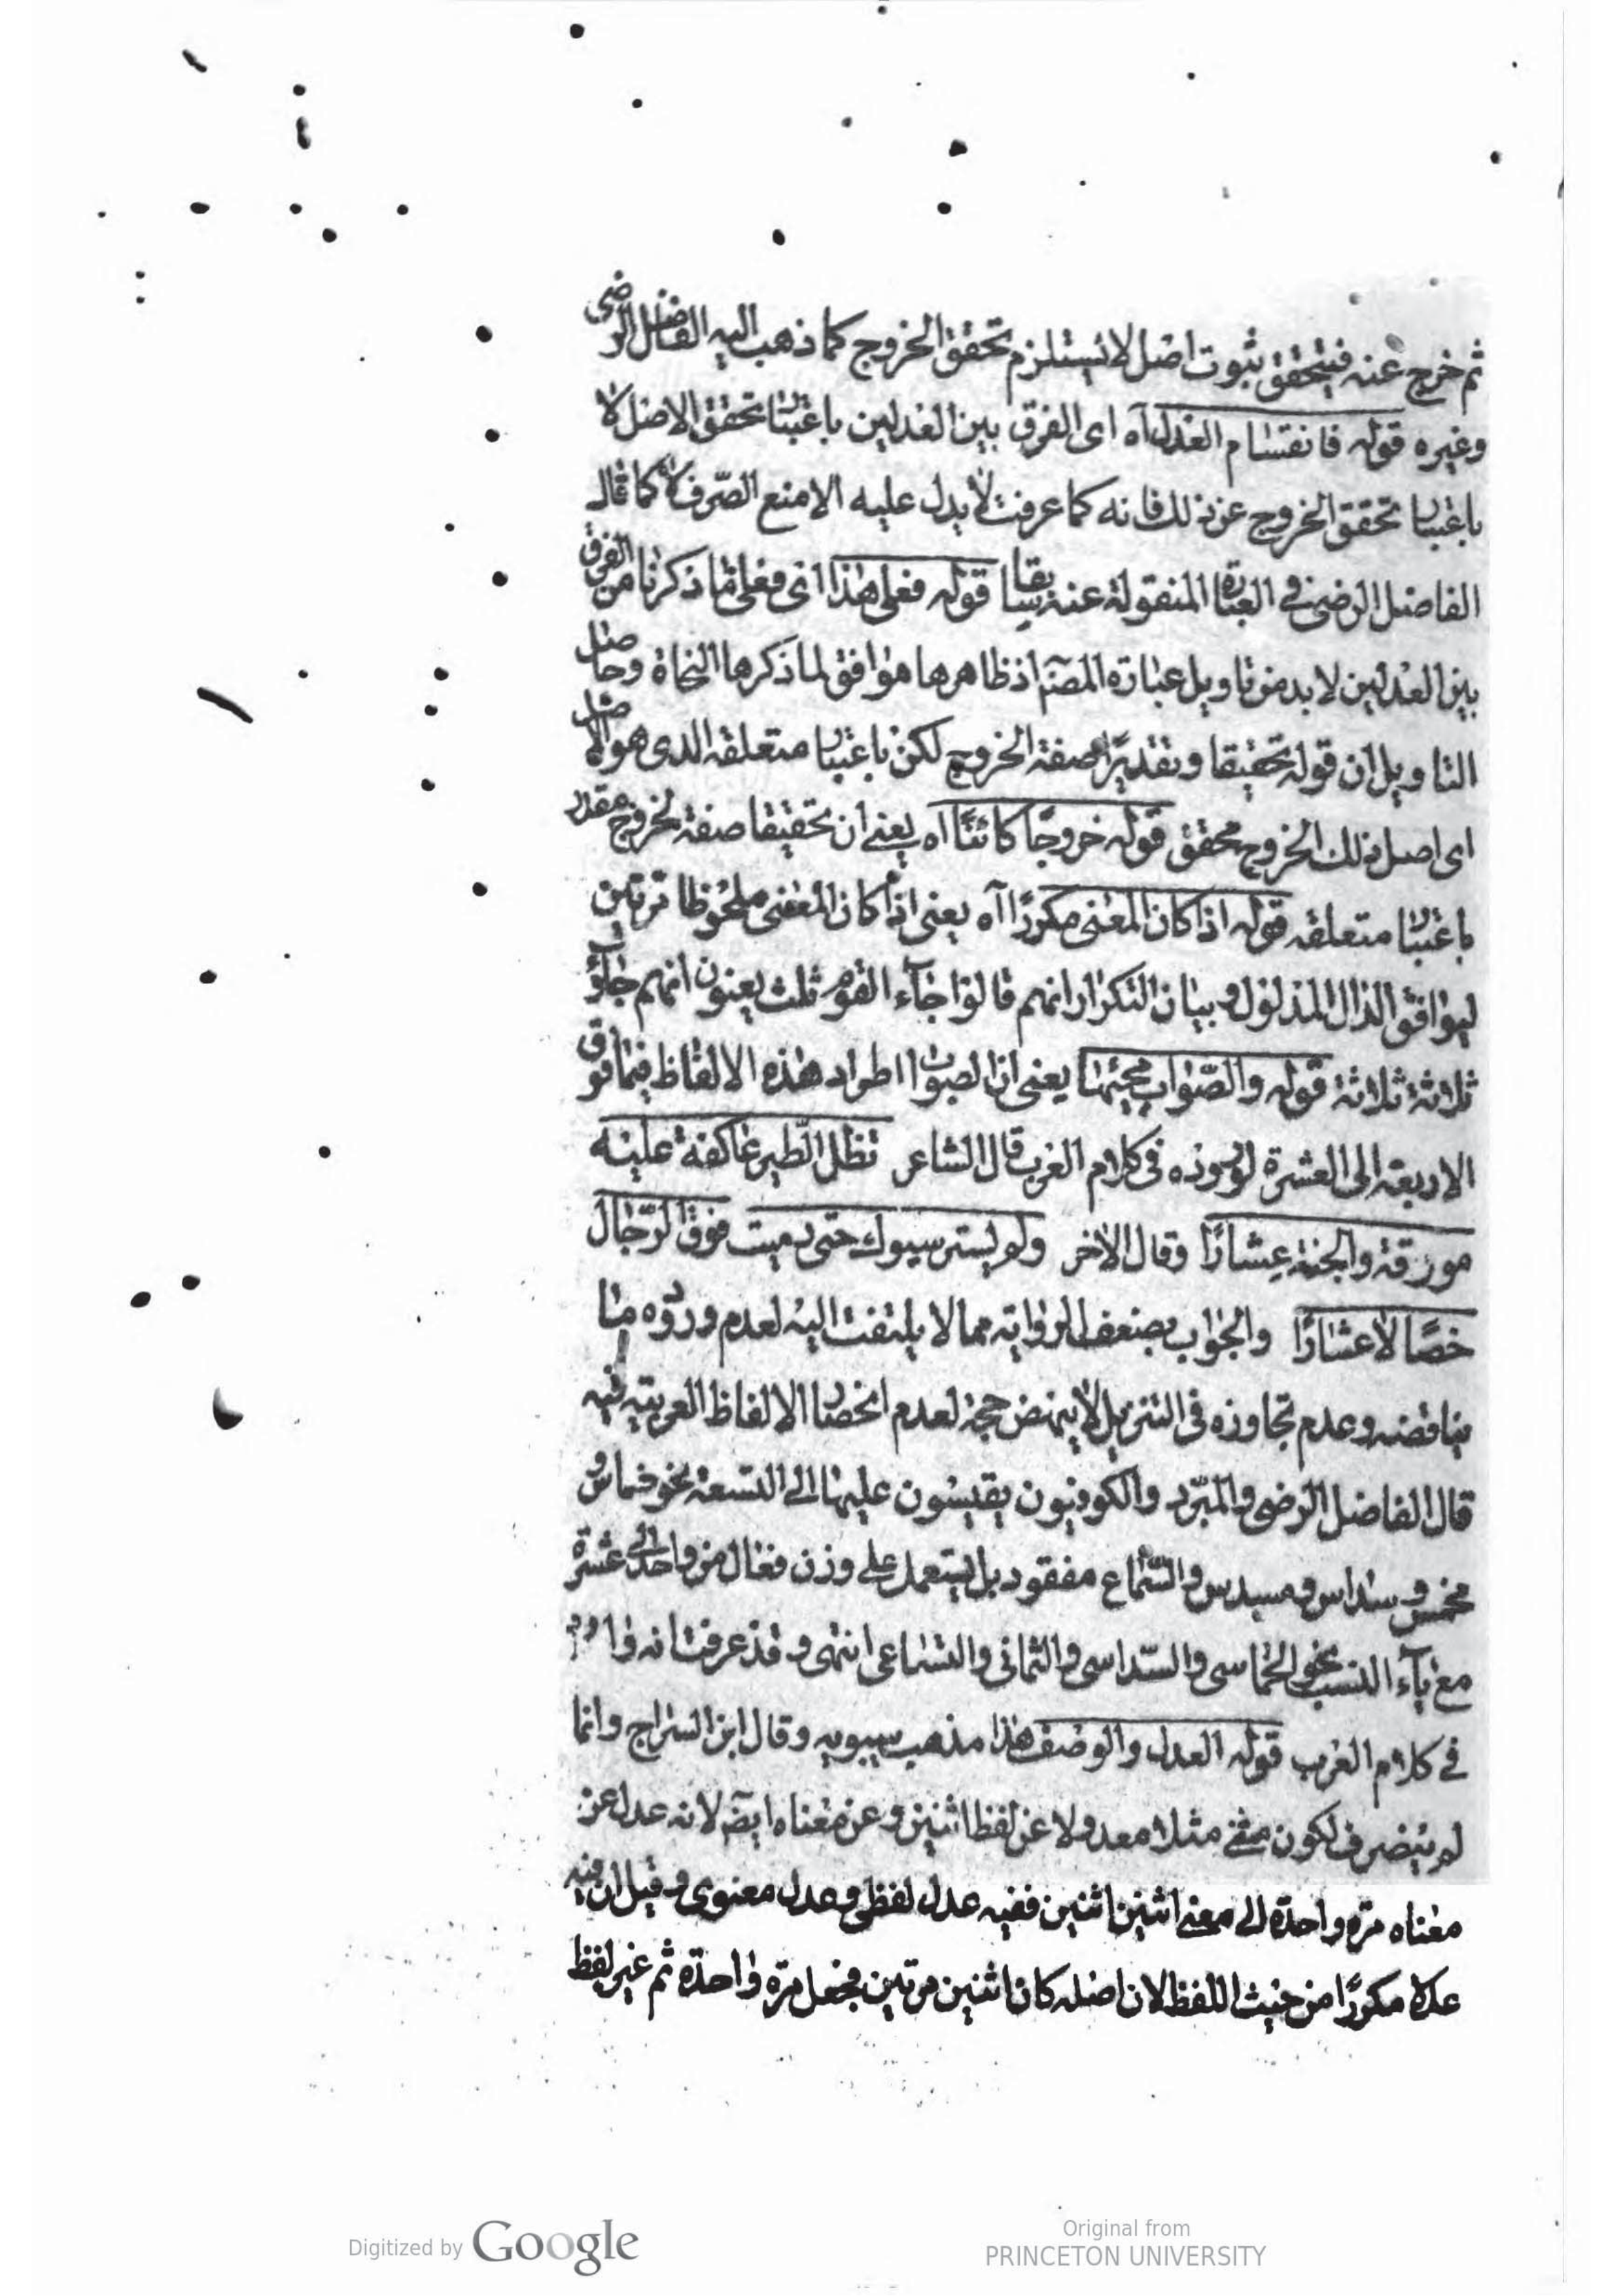 ثم خرج عنه فيتحقق ثبوت اصل لا يستلزم تحقق الخروج كما ذهب اليه الفاضل الرضى
وغيره قوله فانقسام العدل آه اى الفرق بين العدلين باعتبار تحقق الاصل لا
باعتبار تحقق الخروج عن ذلك فانه كما عرفت لا يدل عليه الا منع الصّرف كما قال
الفاضل الرضى في العبارة المنقولة عنه سابقا قوله فعلى هذا اى فعلى ما ذكرنا من الفرق
بين العدلين لا بد من تاويل عبارة المصنّ اذ ظاهرها موافق لما ذكرها النحاة وحاصل
التاويل ان قوله تحقيقا وتقديرًا صفة الخروج لكن باعتبار متعلقه الذى هو الاصل
اى اصل ذلك الخروج محقق قوله خروجًا كائنًا اه يعنى ان تحقيقا صفة لخروج مقدر
باعتبار متعلقه قوله اذا كان المعنى مكررًا آه يعنى اذا كان المعنى ملحوظا مرتين
ليوافق الدال المدلول وبيان التكرار انهم قالوا جآء القوم ثلث يعنون انهم جاؤا
ثلاثة ثلاثة قوله والصّواب مجيئها يعنى ان الصواب اطراد هذه الالفاظ فيما فوق
الاربعة الى العشرة لوروده فى كلام العرب قال الشاعر تظل الطّير عاكفة عليه
مورقة والجنة عِشارًا وقال الاخر ولم يستريبوك حتى رميت فوق الرّجال
خصًا لا عشارًا والجواب بضعف الرواية مما لا يلتفت اليه لعدم وروده ما
يناقضه وعدم تجاوزه فى التنزيل لا ينهض حجة لعدم انحصار الالفاظ العربية فيه
قال الفاضل الرضى والمبرّد والكوفيون يقيسون عليها الى التسعة نحو خماس و
مخمس وسداس ومسدس والسّماع مفقود بل يستعمل على وزن فعال من واحد الى عشرة
مع يآء النسب نحو الخماسى والسّداسى والثمانى والتساعى انتهى وقد عرفت انه وارد
في كلام العرب قوله العدل والوصف هذا مذهب سيبويه وقال ابن السراج وانما
لم ينصرف لكون مثنى مثلا معدولا عن لفظ اثنين وعن معناه ايضً لانه عدل عن
معناه مرّة واحدة الى معنى اثنين اثنين ففيه عدل لفظى وعدل معنوى وقيل ان فيه
عدلا مكررًا من حيث اللفظ لان اصله كان اثنين مرتين فجعل مرّة واحدّة ثم غير لفظ
Digitized by Google
Original from
PRINCETON UNIVERSITY